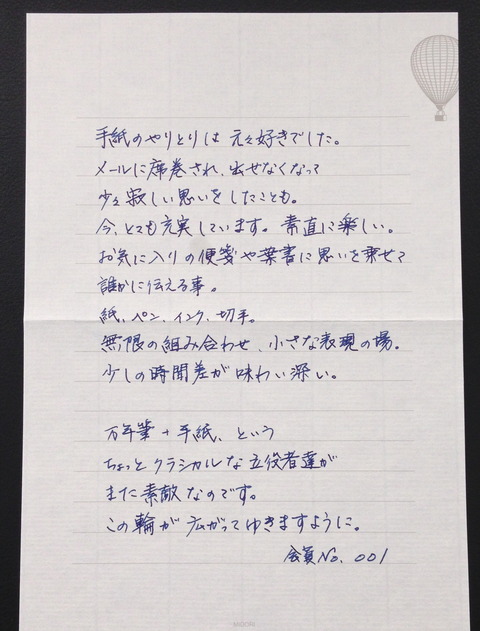 手紙のやりとりは 元々好きでした。
メールに席巻され、出せなくなって
少々寂しい思いをしたことも。
今、とても充実しています。素直に楽しい。
お気に入りの便箋や葉書に思いを乗せて
誰かに伝える事。
紙、ペン、インク、切手。
無限の組み合わせ、小さな表現の場。
少しの時間差が味わい深い。
万年筆+手紙、という
ちょっとクラシカルな立役者達が
また素敵なのです。
この輪が広がってゆきますように。
会員No. 001
MIDORI